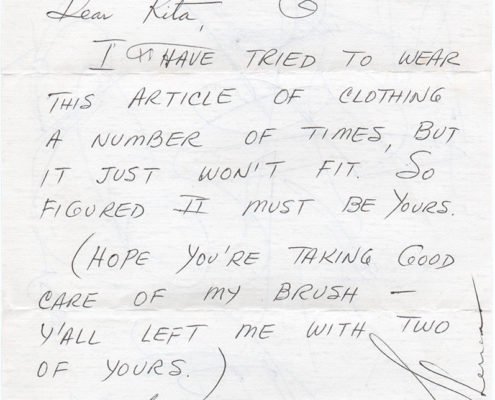 Dear Rita,
I HAVE TRIED TO WEAR
THIS ARTICLE OF CLOTHING
A NUMBER OF TIMES, BUT
IT JUST WON'T FIT. SO
FIGURED IT MUST BE YOURS.
(HOPE YOU'RE TAKING GOOD
CARE OF MY BRUSH –
Y'ALL LEFT ME WITH TWO
OF YOURS.)